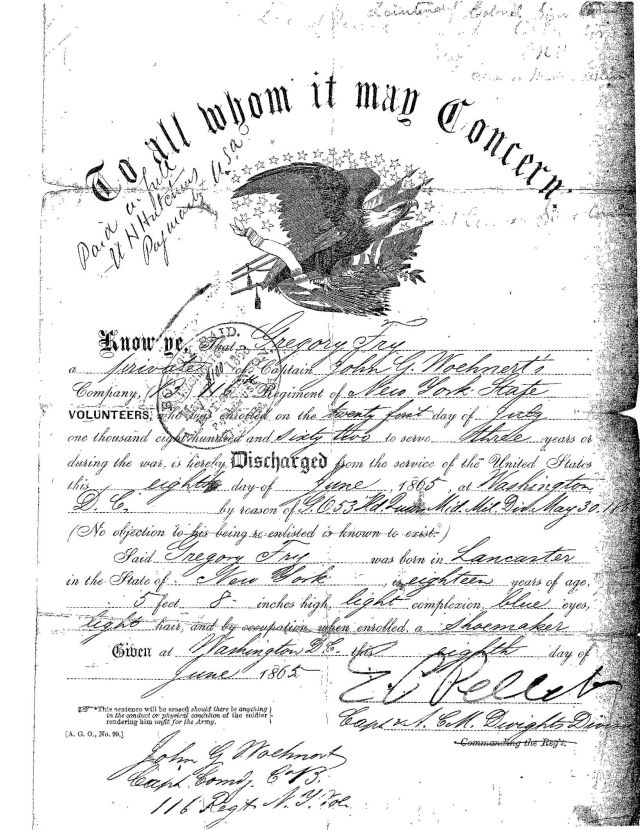 Lieutenant Colonel
To all whom it may Concern:
Paid in full
H N Hutchins
Paymaster USA
PAID.
Know ye, That Gregory Fry
a private of Captain John G. Woehnert's
Company, 116th Regiment of New York State
VOLUNTEERS, who was enrolled on the twenty first day of July
one thousand eight hundred and sixty two to serve three years or
during the war, is hereby Discharged from the service of the United States
this eighth day of June, 1865, at Washington
D. C. by reason of G.O. 53 Hd. Qurs. Mid. Mil. Div. May 30.
(No objection to his being re-enlisted is known to exist.*)
Said Gregory Fry was born in Lancaster
in the State of New York, is eighteen years of age,
5 feet 8 inches high, light complexion, blue eyes,
light hair, and by occupation, when enrolled, a Shoemaker
Given at Washington D.C. this eighth day of
June 1865
*This sentence will be erased should there be anything
in the conduct or physical condition of the soldier
rendering him unfit for the Army.
[A. G. O., No. 99.]
Capt & A. C. M. Dwights Divis
Commanding the Reg't.
John G Woehnert
Capt. Comdg. Co B.
116 Regt N. Y. Vol